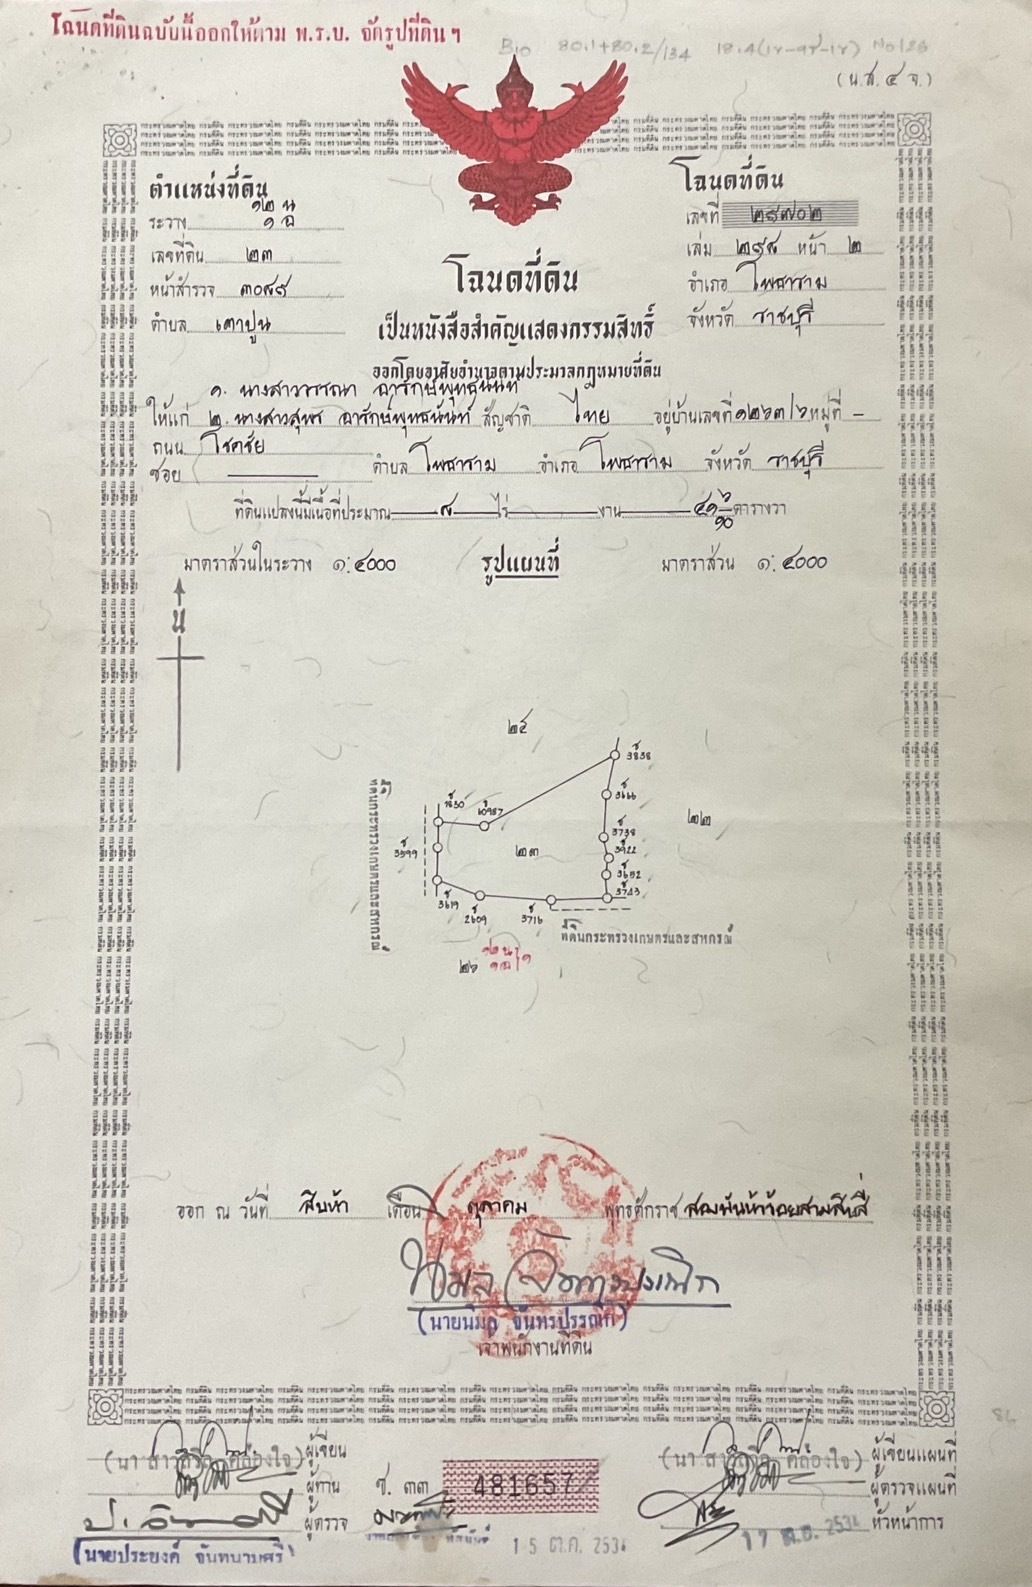 โฉนดที่ดินฉบับนี้ออกให้ตาม พ.ร.บ. จัดรูปที่ดินฯ
80.1+80.2/134
(น.ส.๔ จ.)
ตำแหน่งที่ดิน
ระวาง
เลขที่ดิน ๒๓
หน้าสำรวจ ๓๐๙๙
ตำบล เตาปูน
โฉนดที่ดิน
เลขที่ ๒๙๗๐๒
เล่ม ๒๙๘ หน้า ๒
อำเภอ โพธาราม
จังหวัด ราชบุรี
โฉนดที่ดิน
เป็นหนังสือสำคัญแสดงกรรมสิทธิ์
ออกโดยอาศัยอำนาจตามประมวลกฎหมายที่ดิน
๑. นางสาววรรณา อารักษ์พุทธนันท์
ให้แก่ ๒. นางสาวสุพร อารักษ์พุทธนันท์ สัญชาติ ไทย อยู่บ้านเลขที่ ๑๒๖๓/๖ หมู่ที่ -
ถนน โชคชัย
ซอย ตำบล โพธาราม อำเภอ โพธาราม จังหวัด ราชบุรี
ที่ดินแปลงนี้มีเนื้อที่ประมาณ ๘ ไร่ งาน ๔๑ ๖/๑๐ ตารางวา
มาตราส่วนในระวาง ๑:๔๐๐๐ รูปแผนที่ มาตราส่วน ๑:๔๐๐๐
น
๒๔
3838
3666
3738
3922
3652
3743
๒๒
๒๓
7830
10987
3599
3619
2609
3716
ที่ดินกระทรวงเกษตรและสหกรณ์
ที่ดินกระทรวงเกษตรและสหกรณ์
๒๖
ออก ณ วันที่ สิบห้า เดือน ตุลาคม พุทธศักราช สองพันห้าร้อยสามสิบสี่
(นายนิมล จันทรปรรณิก)
เจ้าพนักงานที่ดิน
ผู้เขียน
ผู้ทาน
ผู้ตรวจ
(นายประยงค์ จันทนามศรี)
ช. ๓๓
481657
15 ต.ค. 2534
ผู้เขียนแผนที่
ผู้ตรวจแผนที่
หัวหน้าการ